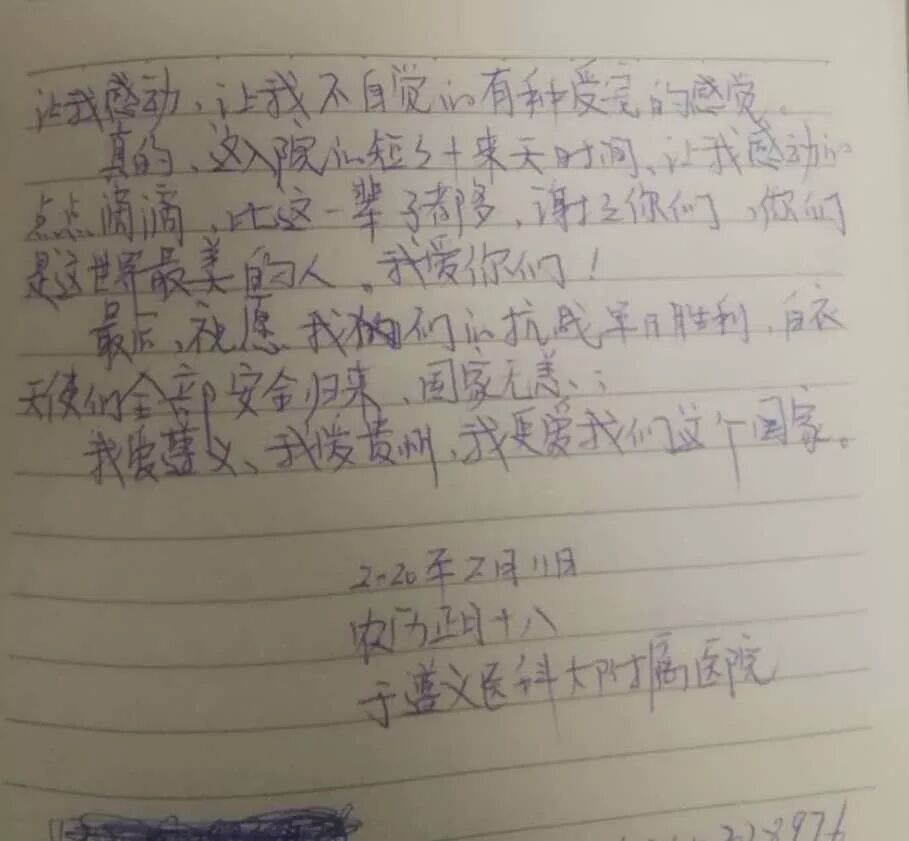 让我感动、让我不自觉的有种受宠的感觉。
真的、这入院的短短十来天时间、让我感动的
点点滴滴，比这一辈子都多，谢谢你们，你们
是这世界最美的人。我爱你们！
最后、祝愿我们的抗战早日胜利，白衣
天使们全部安全归来、国家无恙、；
我爱遵义、我爱贵州、我更爱我们这个国家。
2020年2月11日
农历正月十八
于遵义医科大附属医院
228976